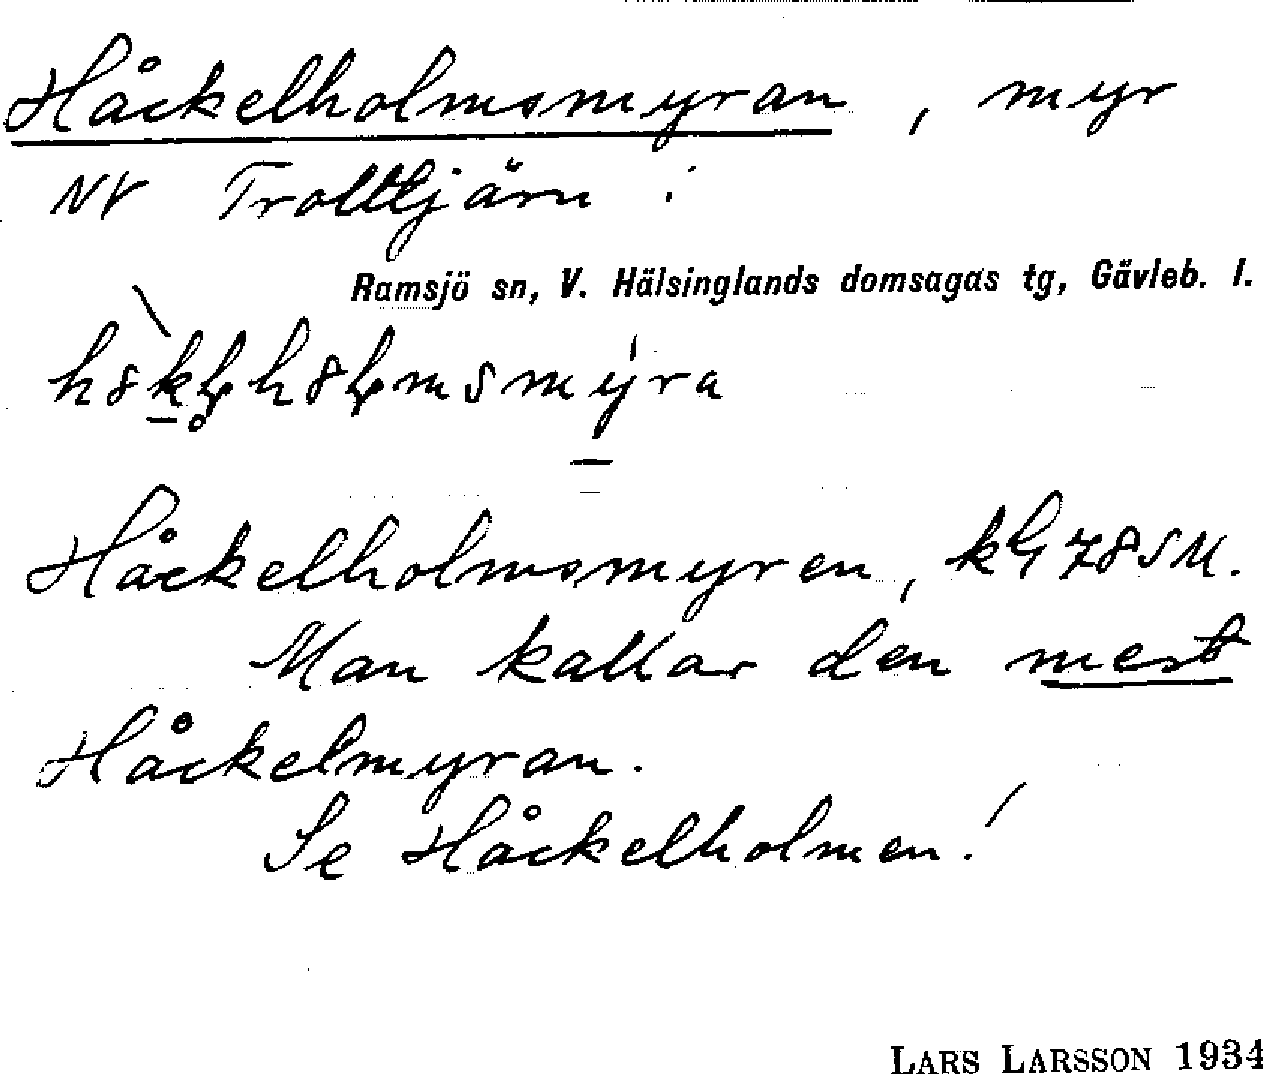 Håckelholmsmyran, myr
NV Trolltjärn i
Ramsjö sn, V. Hälsinglands domsagas tg, Gävleb. l.
Håckelholmsmyren,
Man kallar den mest
Håckelmyran.
Se Håckelholmen!
LARS LARSSON 1934